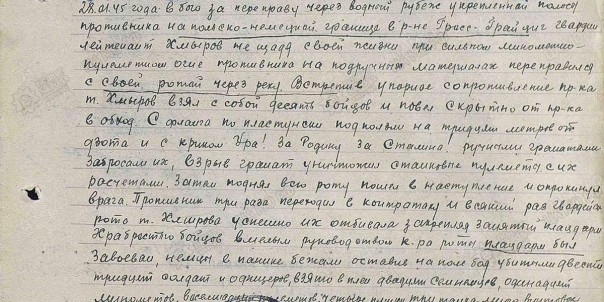 28.01.45 года в бою за переправу через водный рубеж укрепленной полосы
противника на польско-немецкой границе в р-не Гросс-Грайциг гвардии
лейтенант Хмыров не щадя своей жизни при сильном минометно-
пулеметном огне противника на подручных материалах переправился
с своей ротой через реку. Встретив упорное сопротивление пр-ка
т. Хмыров взял с собой десять бойцов и повел скрытно от пр-ка
в обход. С фланга по пластунски подползли на тридцать метров от
дзота и с криком Ура! За Родину За Сталина, ручными гранатами
забросали их, взрыв гранат уничтожил станковые пулеметы с их
расчетами. Затем поднял всю роту пошел в наступление и опрокинул
врага. Противник три раза переходил в контратаку и всякий раз гвардейск
рота т. Хмырова успешно их отбивала закрепляя занятый плацдарм
Храбростью бойцов умелым руководством к-ра роты плацдарм был
завоеван, немцы в панике бежали оставив на поле боя убитыми двести
тридцать солдат и офицеров, взято в плен двадцать семь немцев, одинадцать
минометов, пулеметов, четыре